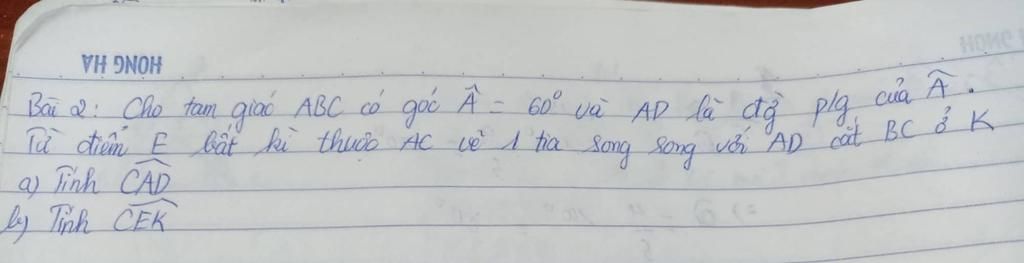 HONG HA
HONG HA
Bài 2: Cho tam giác ABC có góc Â = 60° và AD là đg plg của Â.
Từ điểm E bất kì thuộc AC vẽ 1 tia song song với AD cắt BC ở K
a) Tính CAD
b) Tính CEK